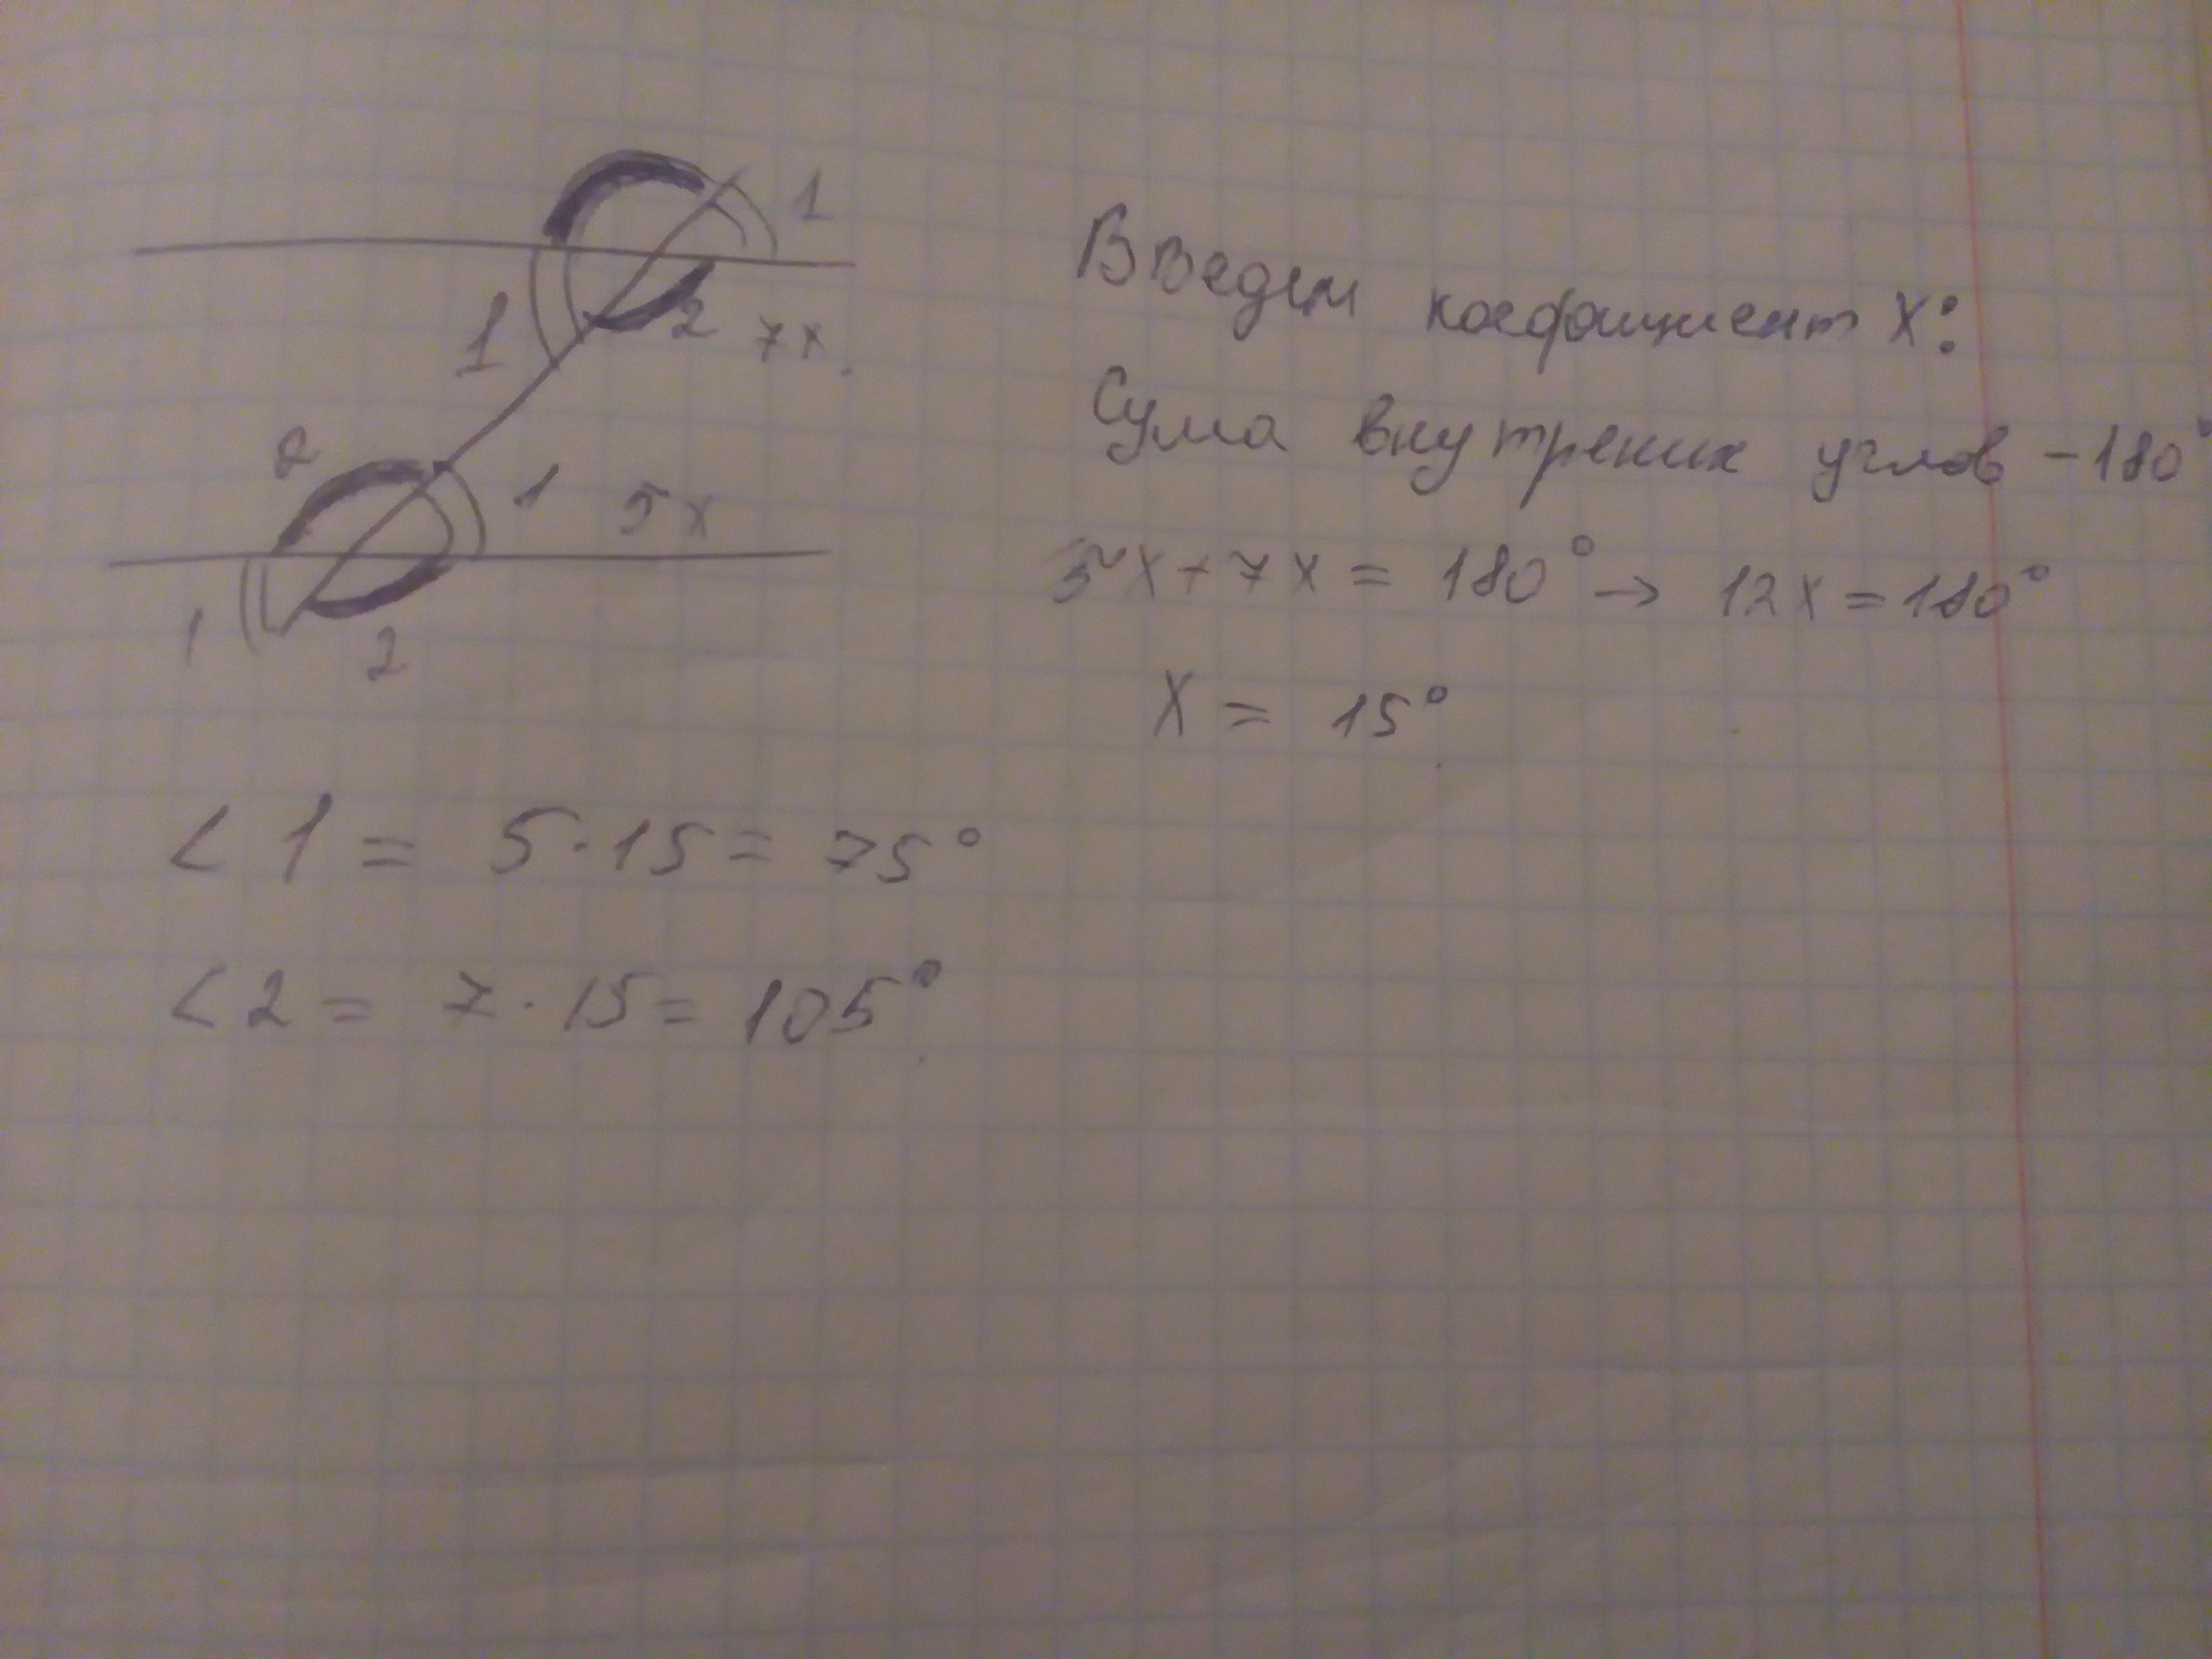 1
1
2 7x
2
1 5x
1
2
Введем коефициент X:
Сума внутрених углов -180°
5x+7x = 180° → 12x = 180°
X = 15°
<1 = 5·15 = 75°
<2 = 7·15 = 105°